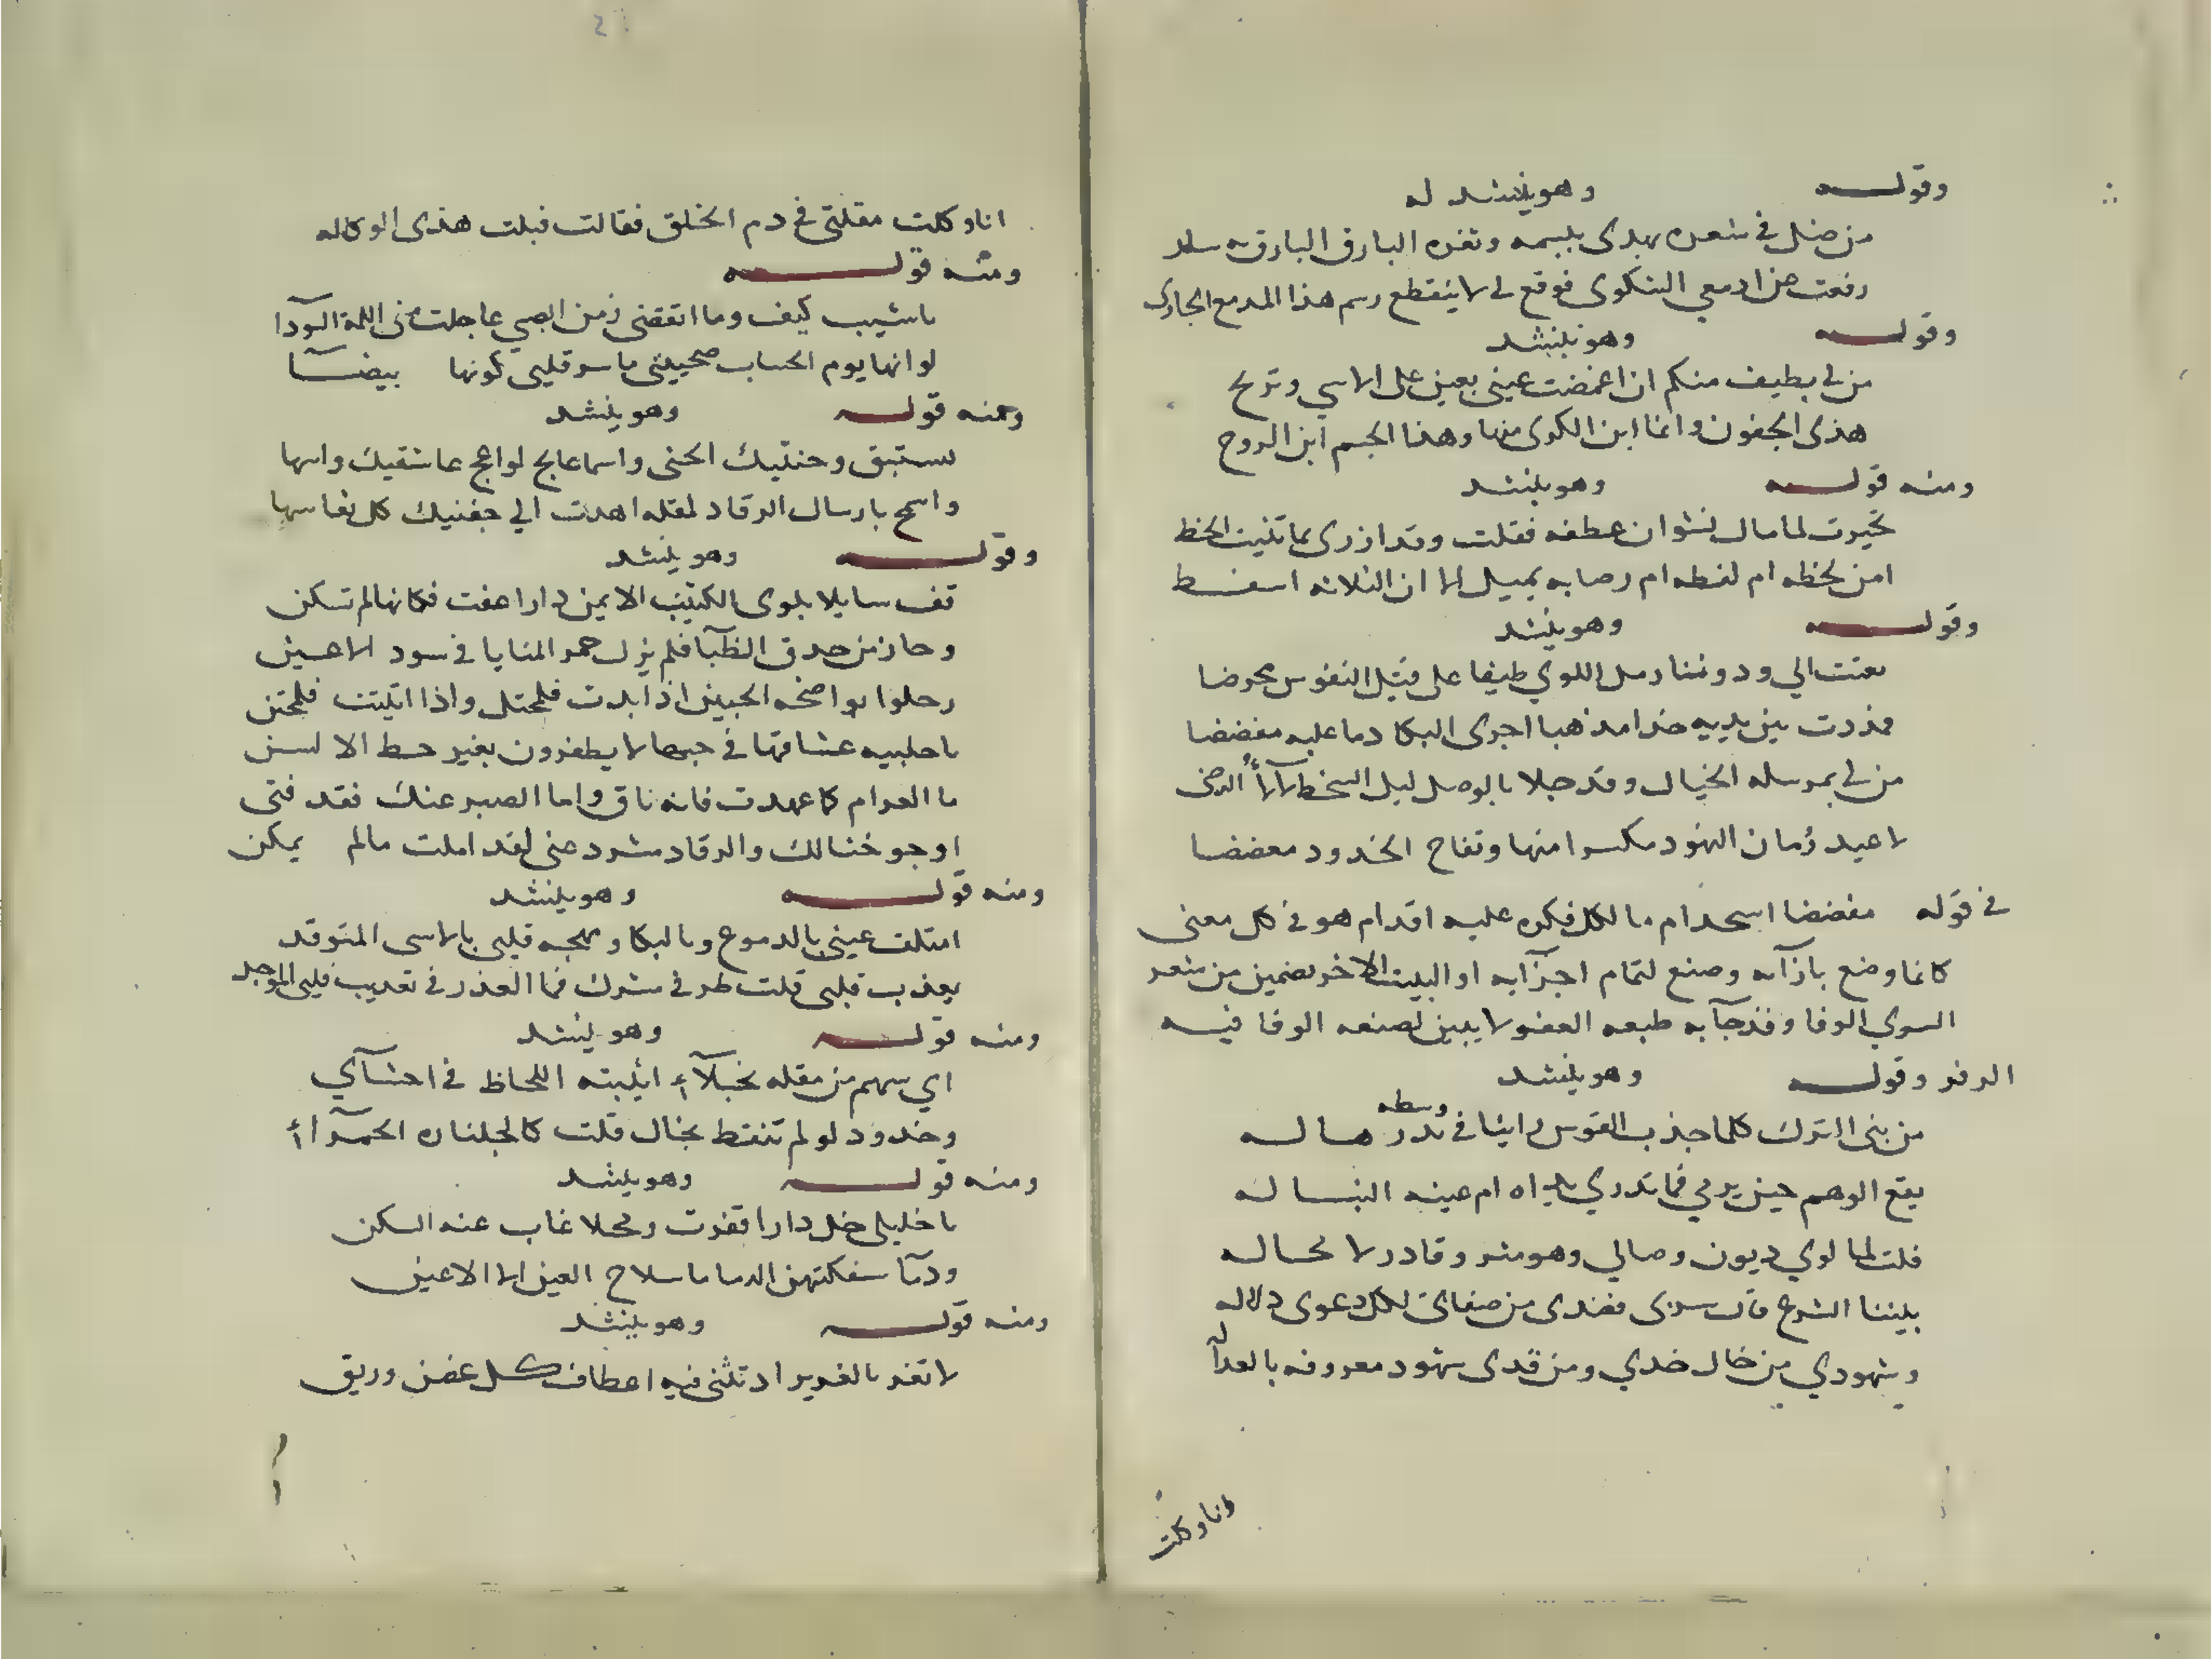 وقوله وهو ينشد له
من ضل في شعره يهدى بمبسمه وثغره البارق البارق
رفعت من ادمعي الشكوى فوقع لي لا ينقطع رسم هذا المدمع الجاري
وقوله وهو ينشد
من لي بطيف منكم ان اغمضت عيني يعين على الاسي وتريح
هذى الجفون وانما اين الكرى منها وهذا الجسم اين الروح
ومنه قوله وهو ينشد
تحيرت لما مال نشوان عطفه فقلت وقد ازرى بما تنبت الخط
امن لحظه ام لفظه ام رضابه يميل الا ان الثلاثه اسفنط
وقوله وهو ينشد
بعثت الي ودوننا رمل اللوي طيفا على قتل النفوس محرضا
فمددت بين يديه خدا مذهبا اجرى البكا دما عليه مفضضا
من لي بمرسله الخيال وقد جلا بالوصل ليل السخط لألأ الرضى
لاعيد رمان النهود مكسرا منها وتفاح الخدود معضضا
في قوله مفضضا استخدام ما لكل فكره عليه اقدام هو في كل معنى
كانما وضع بازآئه وصنع لتمام اجزآيه او البيت الاخر تضمين من شعر
السري الرفا وقد جآ به طبعه العفو لا يبين لصنعه الرفا فيه
الرفو وقوله وهو ينشد
من بني الترك كلما جذب القوس راينا في وسطه بدر هاله
يقع الوهم حين يرمي فما ندري يداه ام عينه النباله
قلت لما لوي ديون وصالي وهو مثر وقادر لا محاله
بيننا الشرع قال سربي فعندى من صفاتي لكل دعوى دلاله
وشهودي من خال خدي ومن قدى شهود معروفه بالعداله
انا وكلت
انا وكلت مقلتي في دم الخلق فقالت قبلت هذى الوكاله
ومنه قوله
يا شيب كيف وما انقضى زمن الصبي عاجلت مني اللمة السودا
لو انها يوم الحساب صحيفتي ما سر قلبي كونها بيضآ
ومنه قوله وهو ينشد
وجنتيك الجنى واسما عالج لواعج عاشقيك واسها
واسمح بارسال الرقاد لمقله اهدت الي جفنيك كل نعاسها
وقوله وهو ينشد
قف سايلا بلوى الكثيب الايمن دارا عفت فكانها لم تسكن
وحذار من حدق الظبآ فلم يزل حمر المنايا في سود الاعين
رحلوا بواضحه الجبين اذا بدت فلتجتل واذا انثنت فلتجتن
عشاقها في حبها لا يظفرون بغير حظ الالسن
ما الغرام كما عهدت فانه باق واما الصبر عنك فقد فنى
ارجو خيالك والرقاد مشرد عني لقد املت مالم يمكن
ومنه قوله وهو ينشد
امتلت عيني بالدموع وبالبكا ومهجه قلبي بالاسى المتوقد
بعذب قبلى قلت طرفي مشرك فما العذر في تعذيب قلبي الموحد
ومنه قوله وهو ينشد
اي سهم من مقله نجلآء اثبته اللحاظ في احشآي
وخدود لو لم تنقط بخال قلت كالجلناره الحمرآء
ومنه قوله وهو ينشد
يا خليلي خل دارا اقفرت ومحلا غاب عنه السكن
ودمآ سفكتهن الدما ما سلاح العين الا الاعين
ومنه قوله وهو ينشد
لا تغر بالغدير اذ تثنى فيه اعطاف كل غصن وريق